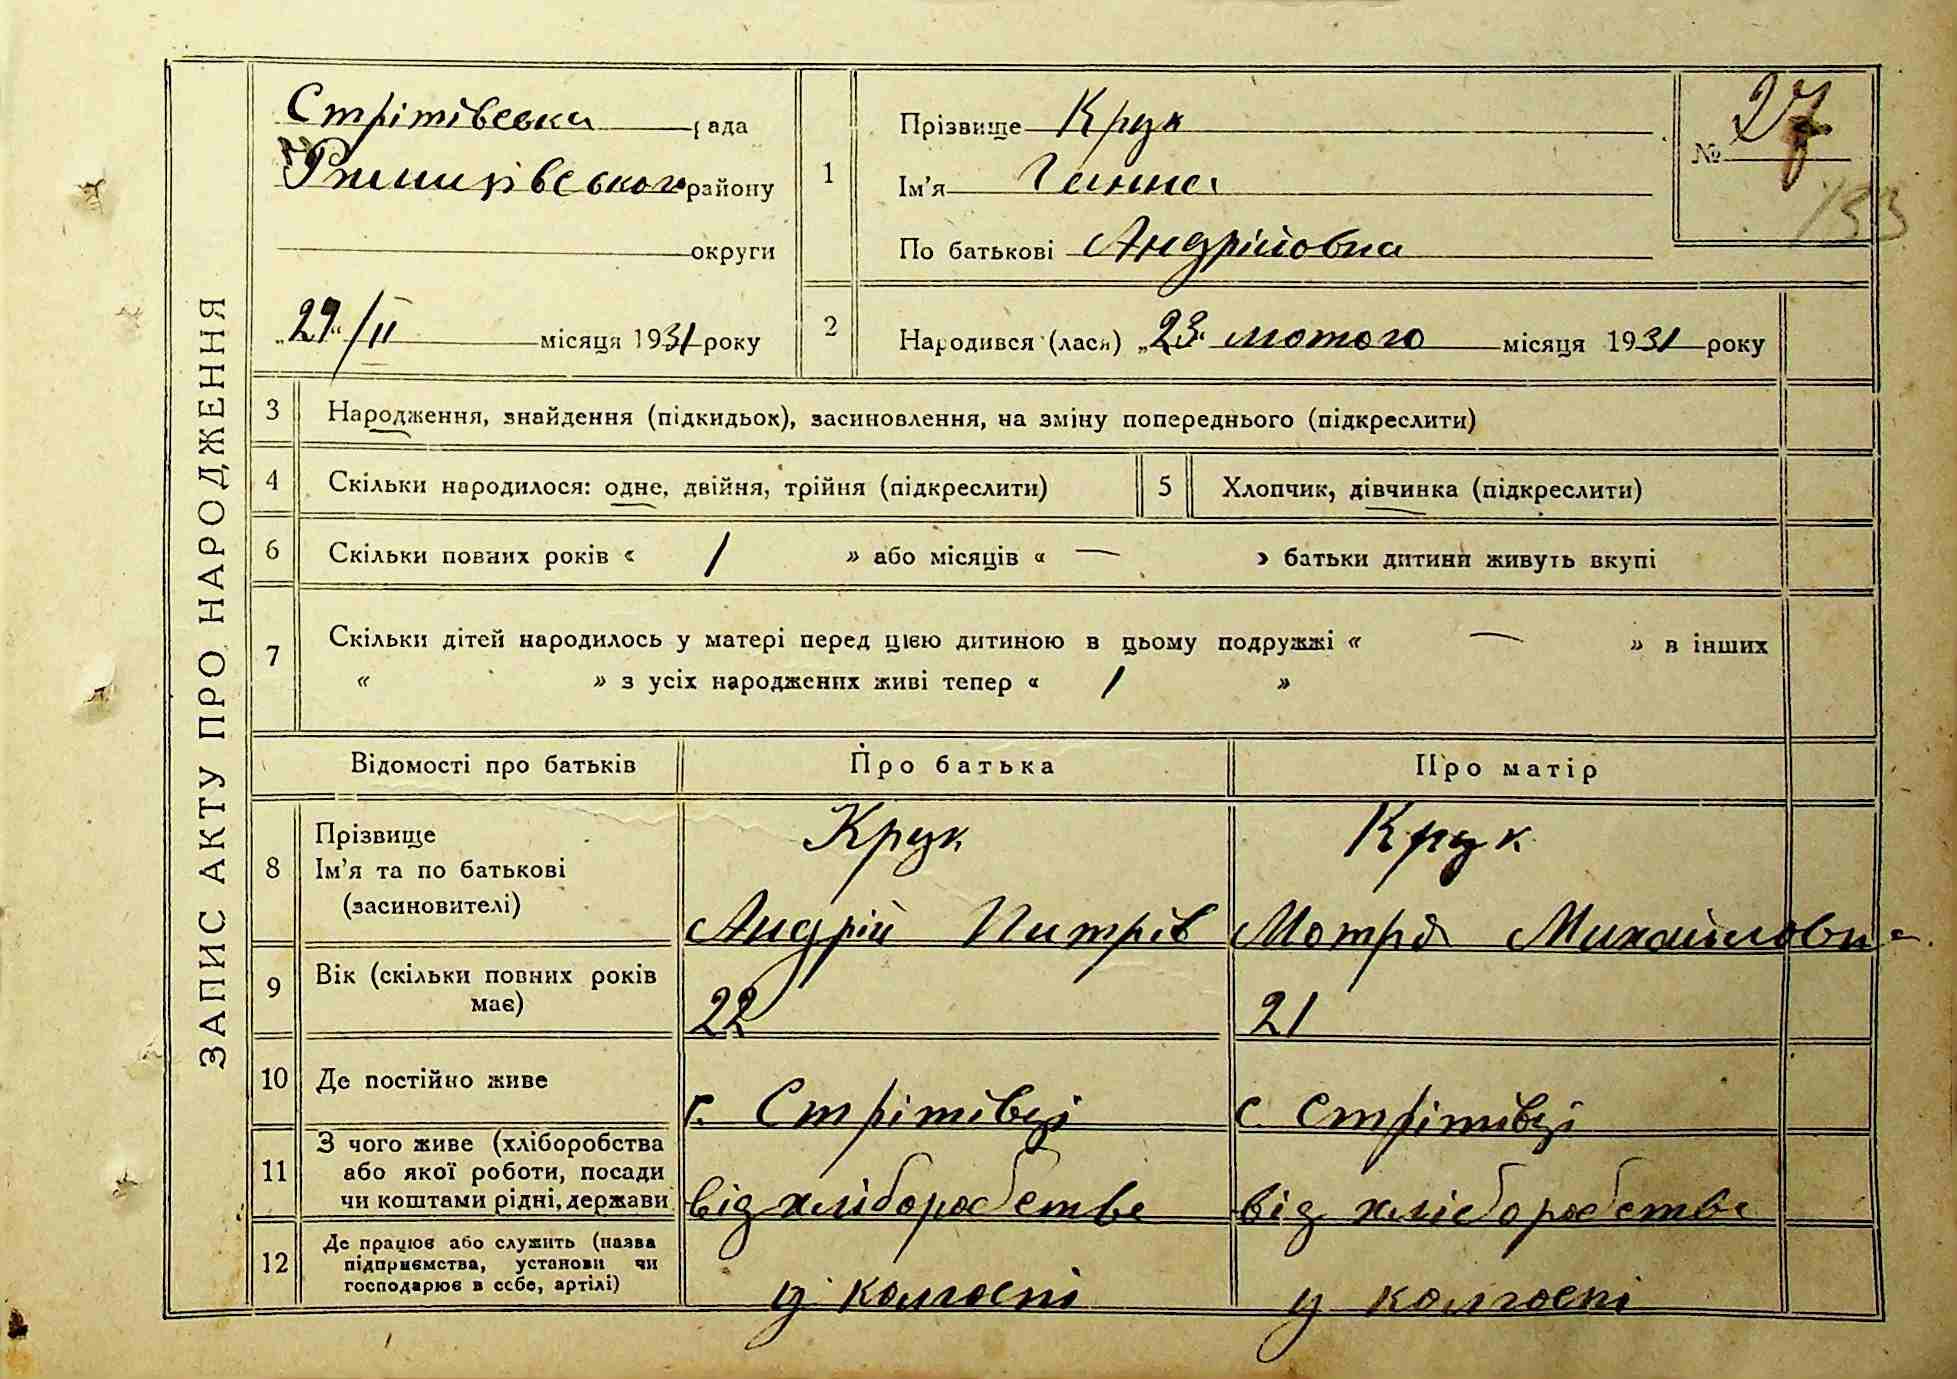 ЗАПИС АКТУ ПРО НАРОДЖЕННЯ
Стрітівська рада
Ржищівського району
округи
„27“/II місяця 1931 року
1
Прізвище Крук
Ім'я Ганна
По батькові Андрійовна
№ 27
133
2
Народився (лася) „23“ лютого місяця 1931 року
3 Народження, знайдення (підкидьок), засиновлення, на зміну попереднього (підкреслити)
4 Скільки народилося: одне, двійня, трійня (підкреслити) 5 Хлопчик, дівчинка (підкреслити)
6 Скільки повних років « 1 » або місяців « — » батьки дитини живуть вкупі
7 Скільки дітей народилось у матері перед цією дитиною в цьому подружжі « — » в інших
« » з усіх народжених живі тепер « 1 »
Відомості про батьків Про батька Про матір
8 Прізвище
Ім'я та по батькові
(засиновителі)
Крук
Андрій Питрів
Крук
Мотря Михайловна
9 Вік (скільки повних років
має)
22 21
10 Де постійно живе с. Стрітівці с. Стрітівці
11 З чого живе (хліборобства
або якої роботи, посади
чи коштами рідні, держави
від хліборобства від хліборобства
12 Де працює або служить (назва
підприємства, установи чи
господарює в себе, артілі)
у колгоспі у колгоспі